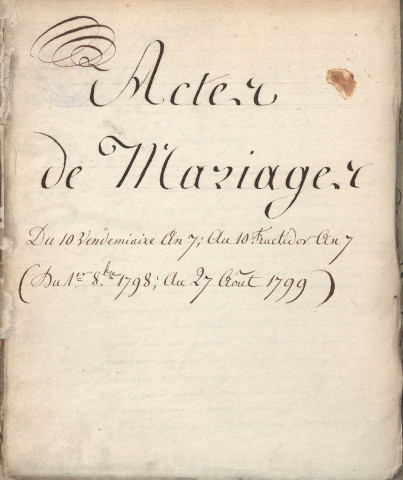 Actes
de Mariages
Du 10 Vendemiaire An 7; Au 10 Fructidor An 7
(Du 1er 8.bre 1798; Au 27 Août 1799)